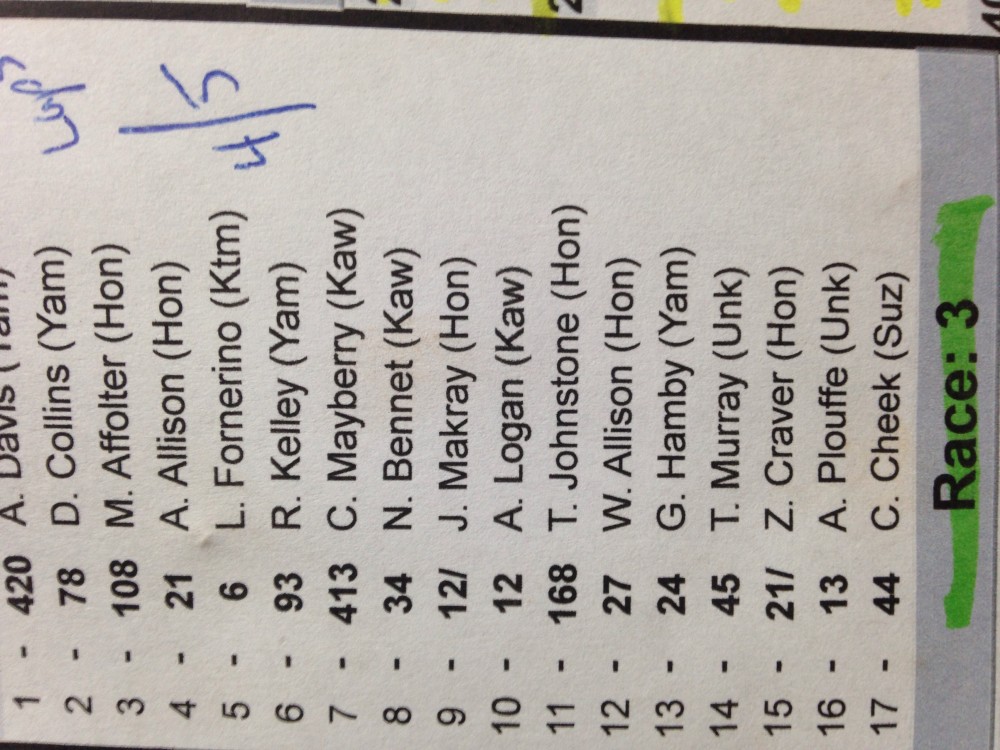 1 - 420 A. Davis (Yam)
2 - 78 D. Collins (Yam)
3 - 108 M. Affolter (Hon)
4 - 21 A. Allison (Hon)
5 - 6 L. Fornerino (Ktm)
6 - 93 R. Kelley (Yam)
7 - 413 C. Mayberry (Kaw)
8 - 34 N. Bennet (Kaw)
9 - 12/ J. Makray (Hon)
10 - 12 A. Logan (Kaw)
11 - 168 T. Johnstone (Hon)
12 - 27 W. Allison (Hon)
13 - 24 G. Hamby (Yam)
14 - 45 T. Murray (Unk)
15 - 21/ Z. Craver (Hon)
16 - 13 A. Plouffe (Unk)
17 - 44 C. Cheek (Suz)
4/5
Race: 3